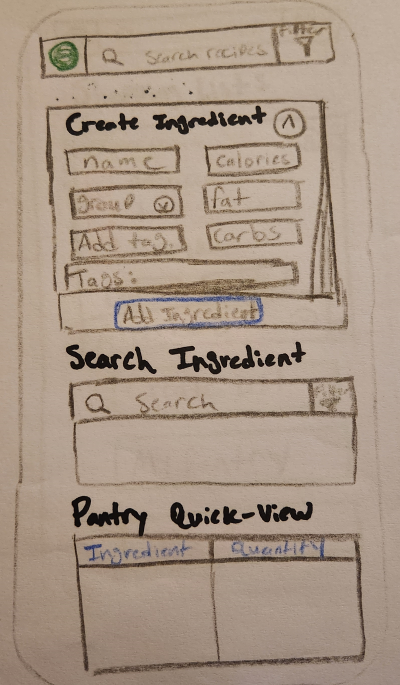 Search recipes Filter
Create Ingredient
name calories
group fat
Add tag. Carbs
Tags:
Add Ingredient
Search Ingredient
Search Filter
Pantry Quick-View
Ingredient Quantity